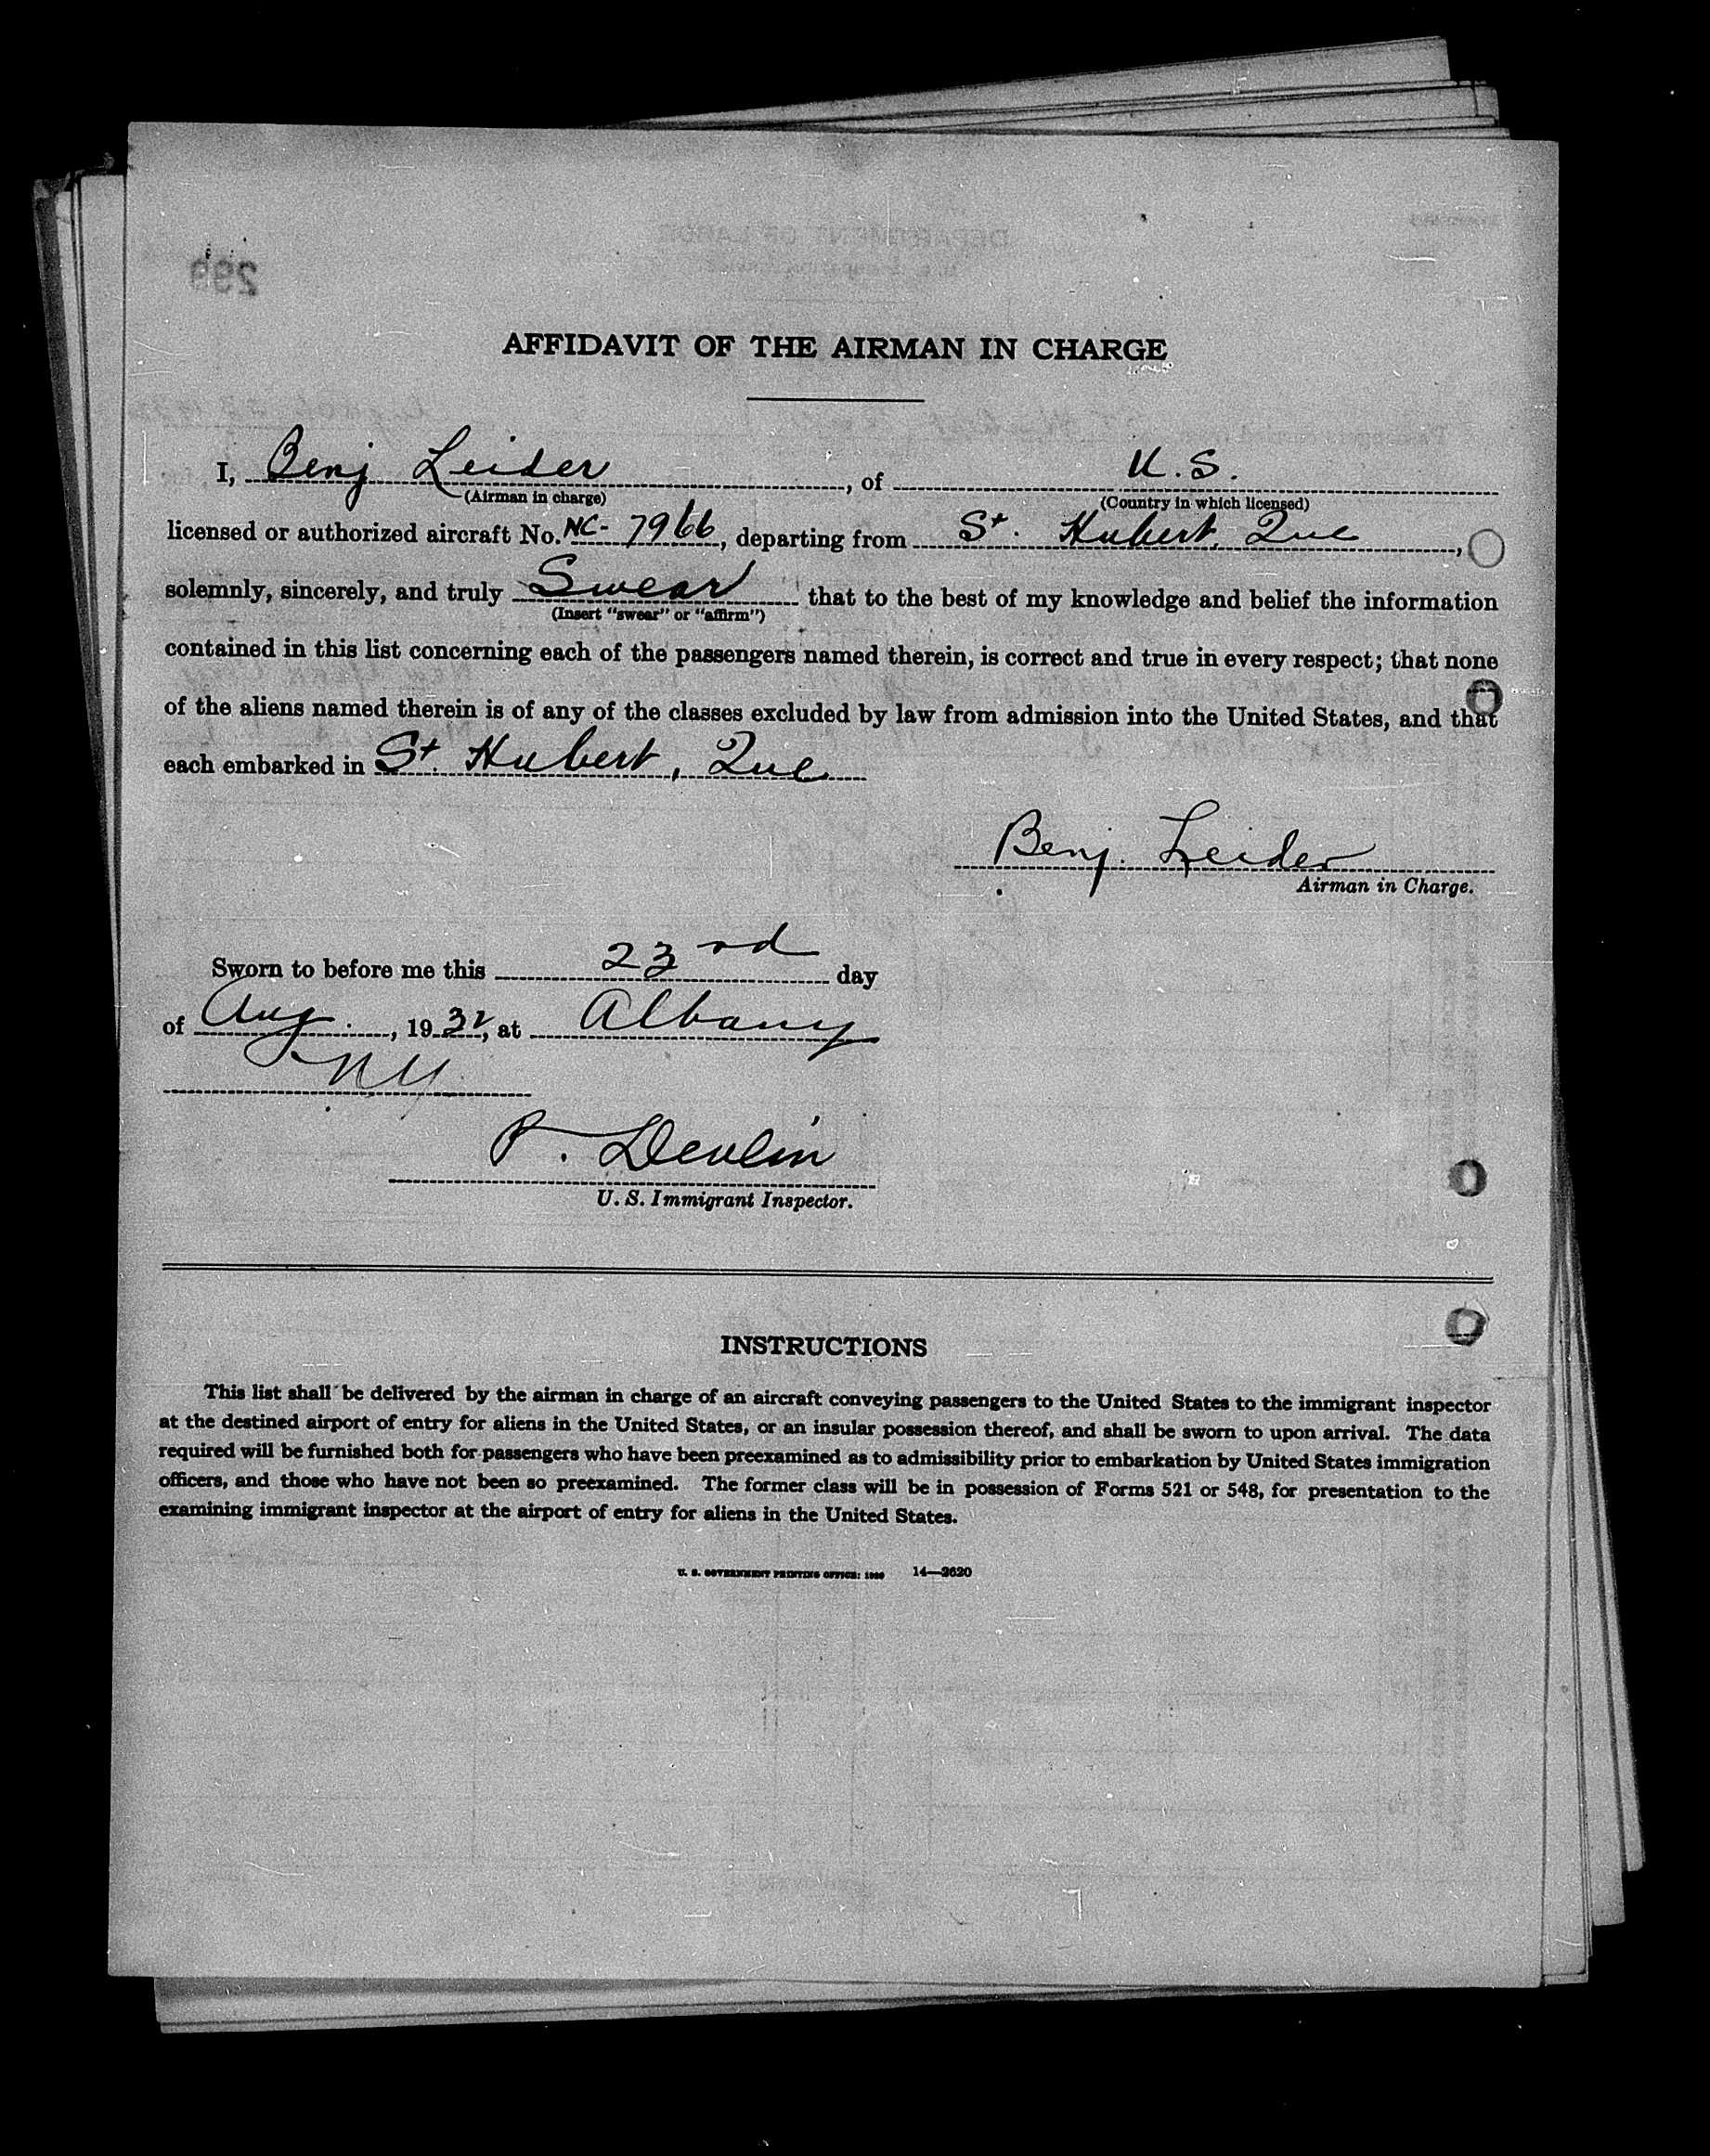 299
AFFIDAVIT OF THE AIRMAN IN CHARGE
I, Benj Leider, of U. S.
(Airman in charge) (Country in which licensed)
licensed or authorized aircraft No. NC-7966, departing from St. Hubert, Que,
solemnly, sincerely, and truly Swear that to the best of my knowledge and belief the information
(Insert "swear" or "affirm")
contained in this list concerning each of the passengers named therein, is correct and true in every respect; that none
of the aliens named therein is of any of the classes excluded by law from admission into the United States, and that
each embarked in St. Hubert, Que
Benj. Leider
Airman in Charge.
Sworn to before me this 23rd day
of Aug., 1932, at Albany
NY
P. Devlin
U. S. Immigrant Inspector.
INSTRUCTIONS
This list shall be delivered by the airman in charge of an aircraft conveying passengers to the United States to the immigrant inspector
at the destined airport of entry for aliens in the United States, or an insular possession thereof, and shall be sworn to upon arrival. The data
required will be furnished both for passengers who have been preexamined as to admissibility prior to embarkation by United States immigration
officers, and those who have not been so preexamined. The former class will be in possession of Forms 521 or 548, for presentation to the
examining immigrant inspector at the airport of entry for aliens in the United States.
U. S. GOVERNMENT PRINTING OFFICE: 14—2620